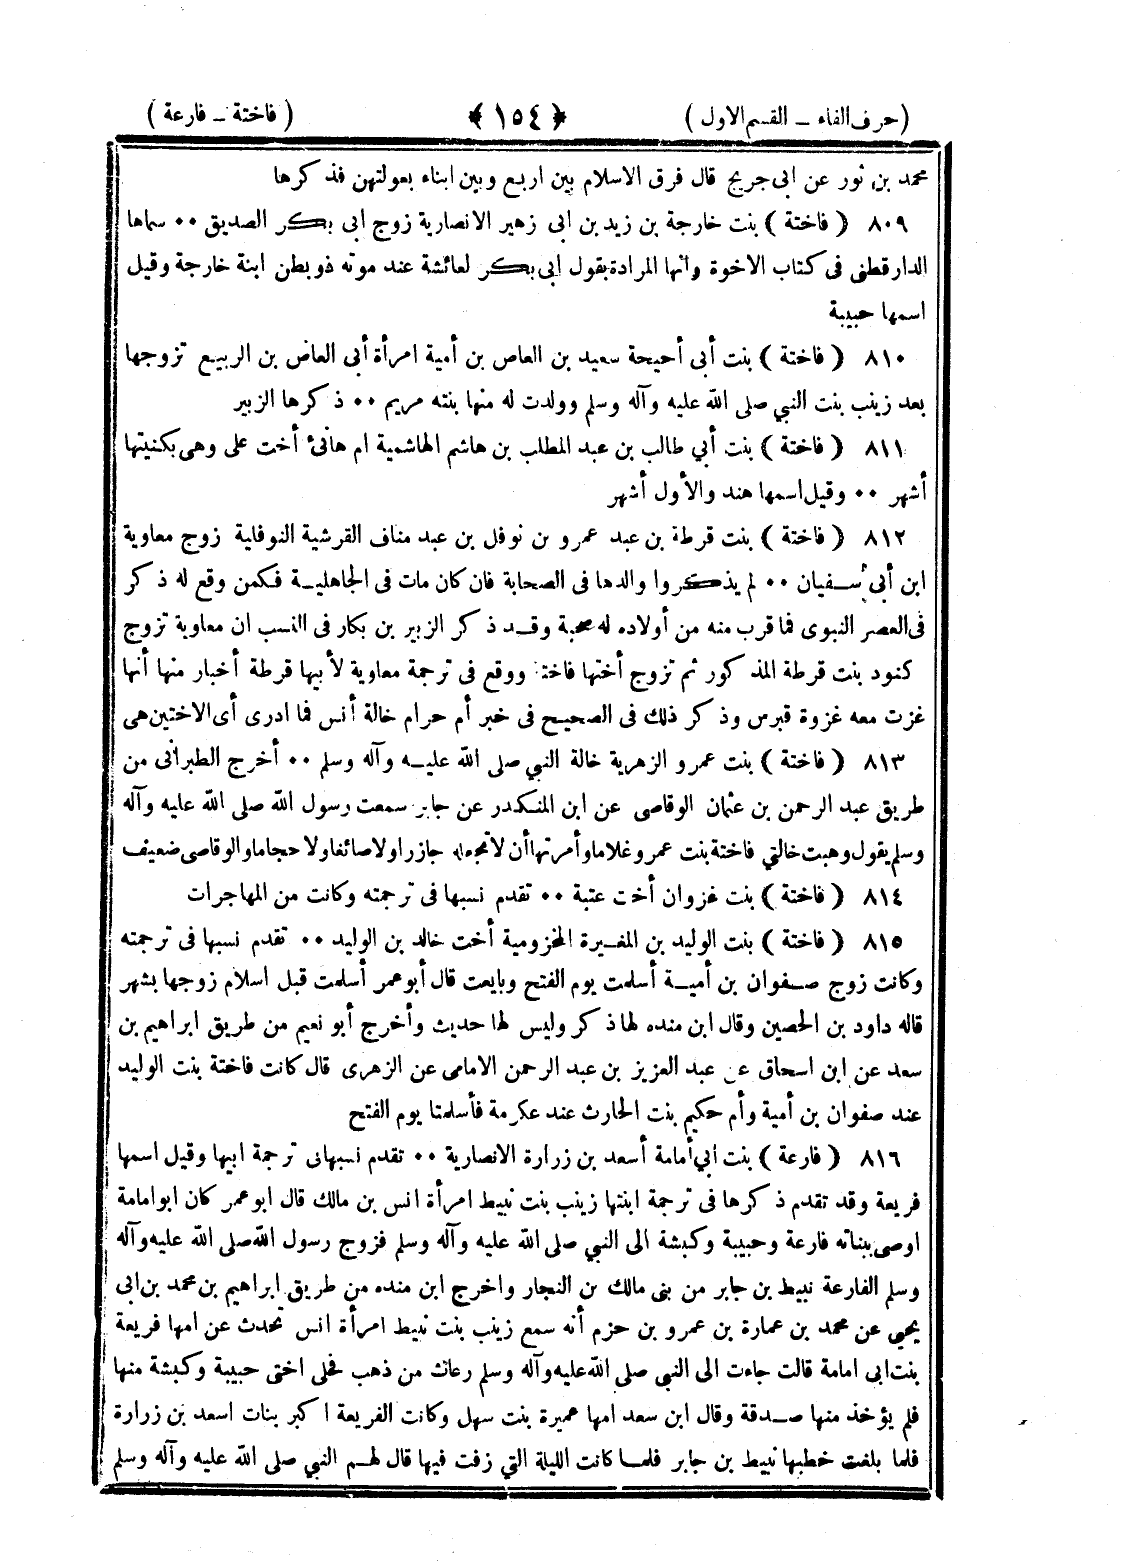 (حرف الفاء – القسم الاول) ﴿ ١٥٤ ﴾ (فاختة – فارعة)
محمد بن ثور عن ابى جريج قال فرق الاسلام بين اربع وبين ابناء بعولتهن فذكرها
٨٠٩ ( فاختة ) بنت خارجة بن زيد بن ابى زهير الانصارية زوج ابى بكر الصديق ٠٠ سماها
الدارقطنى فى كتاب الاخوة وانها المرادة بقول ابى بكر لعائشة عند موته ذو بطن ابنة خارجة وقيل
اسمها حبيبة
٨١٠ ( فاختة ) بنت أبى أحيحة سعيد بن العاص بن أمية امرأة أبى العاص بن الربيع تزوجها
بعد زينب بنت النبي صلى الله عليه وآله وسلم وولدت له منها بنته مريم ٠٠ ذكرها الزبير
٨١١ ( فاختة ) بنت أبي طالب بن عبد المطلب بن هاشم الهاشمية ام هانئ أخت على وهى بكنيتها
أشهر ٠٠ وقيل اسمها هند والأول أشهر
٨١٢ ( فاختة ) بنت قرطة بن عبد عمرو بن نوفل بن عبد مناف القرشية النوفلية زوج معاوية
ابن أبي سفيان ٠٠ لم يذكروا والدها فى الصحابة فان كان مات فى الجاهلية فكمن وقع له ذكر
فى العصر النبوى فما قرب منه من أولاده له صحبة وقد ذكر الزبير بن بكار فى النسب ان معاوية تزوج
كنود بنت قرطة المذكور ثم تزوج أختها فاختة ووقع فى ترجمة معاوية لأبيها قرطة أخبار منها أنها
غزت معه غزوة قبرس وذكر ذلك فى الصحيح فى خبر أم حرام خالة أنس فما ادرى أى الاختين هى
٨١٣ ( فاختة ) بنت عمرو الزهرية خالة النبي صلى الله عليه وآله وسلم ٠٠ أخرج الطبرانى من
طريق عبد الرحمن بن عثمان الوقاصى عن ابن المنكدر عن جابر سمعت رسول الله صلى الله عليه وآله
وسلم يقول وهبت خالتي فاختة بنت عمرو غلاما وأمرتها أن لا تجعله جازرا ولا صائغا ولا حجاما والوقاصى ضعيف
٨١٤ ( فاختة ) بنت غزوان أخت عتبة ٠٠ تقدم نسبها فى ترجمته وكانت من المهاجرات
٨١٥ ( فاختة ) بنت الوليد بن المغيرة المخزومية أخت خالد بن الوليد ٠٠ تقدم نسبها فى ترجمته
وكانت زوج صفوان بن أمية أسلمت يوم الفتح وبايعت قال أبو عمر أسلمت قبل اسلام زوجها بشهر
قاله داود بن الحصين وقال ابن منده لها ذكر وليس لها حديث وأخرج أبو نعيم من طريق ابراهيم بن
سعد عن ابن اسحاق عن عبد العزيز بن عبد الرحمن الامامى عن الزهرى قال كانت فاختة بنت الوليد
عند صفوان بن أمية وأم حكيم بنت الحارث عند عكرمة فأسلمتا يوم الفتح
٨١٦ ( فارعة ) بنت أبي أمامة أسعد بن زرارة الانصارية ٠٠ تقدم نسبها فى ترجمة ابيها وقيل اسمها
فريعة وقد تقدم ذكرها فى ترجمة ابنتها زينب بنت نبيط امرأة انس بن مالك قال ابو عمر كان ابو امامة
اوصى ببناته فارعة وحبيبة وكبشة الى النبي صلى الله عليه وآله وسلم فزوج رسول الله صلى الله عليه وآله
وسلم الفارعة نبيط بن جابر من بنى مالك بن النجار واخرج ابن منده من طريق ابراهيم بن محمد بن ابى
يحيى عن محمد بن عمارة بن عمرو بن حزم أنه سمع زينب بنت نبيط امرأة انس تحدث عن امها فريعة
بنت ابى امامة قالت جاءت الى النبي صلى الله عليه وآله وسلم رعاث من ذهب فحلى اختى حبيبة وكبشة منها
فلم يؤخذ منها صدقة وقال ابن سعد امها عميرة بنت سهل وكانت الفريعة اكبر بنات اسعد بن زرارة
فلما بلغت خطبها نبيط بن جابر فلما كانت الليلة التي زفت فيها قال لهم النبي صلى الله عليه وآله وسلم